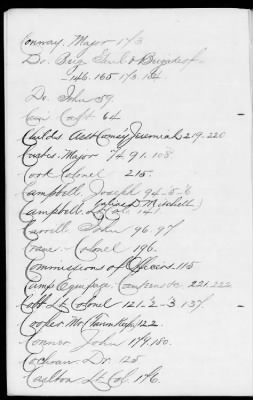 Conway. Major 173
Do. Brig Genl & Brigade of
146. 165 173 184
Do. John 59
Cain Capt 64
Childs Asst Comey Jeremiah 219. 220
Curtis. Major 74 91. 108.
Cook Colonel 215.
Campbell, Joseph 94. 5. 6
Campbell. Lt Col. 141
Carroll John 96. 97
Crane - Colonel 196.
Commissions of Officers. 115
Camp Equipage 221. 222
Colonel 121. 2-3 137
Cooper Mr 122.
Connor John 179. 180.
Cochran Dr. 125
Carlton Lt Col. 176.